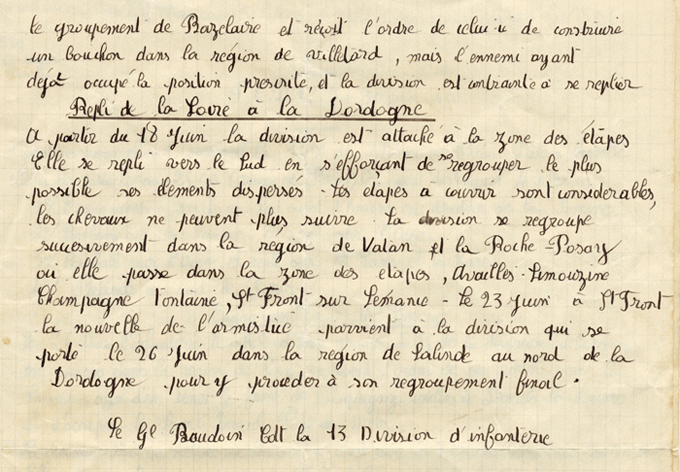 le groupement de Bazelaire et reçoit l'ordre de celui-ci de construire
un bouchon dans la région de Villedard, mais l'ennemi ayant
dejà occupé la position prescrite, et la division est contrainte à se replier
Repli de la Loire à la Dordogne
A partir du 18 Juin la division est attaché à la zone des étapes
Elle se repli vers le Sud en s'efforçant de se regrouper le plus
possible ses élements dispersés - les étapes à couvrir sont considerables,
les chevaux ne peuvent plus suivre. La division se regroupe
succesivement dans la région de Vatan et la Roche-Posay
où elle passe dans la zone des etapes, Availles-Limouzine
Champagne Fontaine, St Front sur Lemance - Le 23 Juin à St Front
la nouvelle de l'armistice parvient à la division qui se
porte le 26 Juin dans la région de Lalinde au nord de la
Dordogne pour y proceder à son regroupement final.
Le Gl Baudoin Cdt la 13 Division d'infanterie